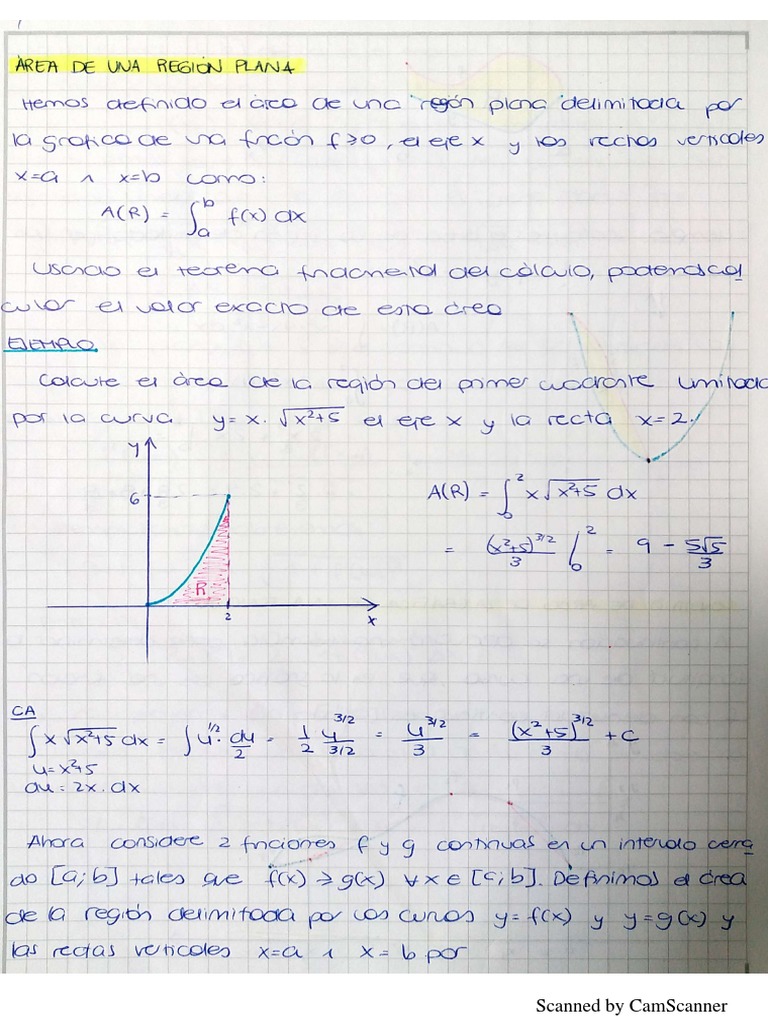 ÁREA DE UNA REGIÓN PLANA
Hemos definido el área de una región plana delimitada por
la grafica de una fnción f≥0, el eje x y las rectas verticales
x=a ∧ x=b como:
A(R) = ∫_a^b f(x) dx
Usando el teorema fndamental del cálculo, podemos cal
cular el valor exacto de esta área
EJEMPLO
Calcule el área de la región del primer cuadrante limitada
por la curva y= x·√(x²+5) el eje x y la recta x=2.
y
6
R
2
x
A(R) = ∫_0^2 x√(x²+5) dx
= (x²+5)^(3/2)/3 |_0^2 = 9 − 5√5/3
CA
∫ x√(x²+5) dx = ∫ u^(1/2) · du/2 = 1/2 u^(3/2)/(3/2) = u^(3/2)/3 = (x²+5)^(3/2)/3 + C
u=x²+5
du = 2x·dx
Ahora considere 2 fnciones f y g continuas en un intervalo cerra
do [a;b] tales que f(x) ≥ g(x) ∀x∈[a;b]. Definimos el área
de la región delimitada por las curvas y=f(x) y y=g(x) y
las rectas verticales x=a ∧ x=b por
Scanned by CamScanner